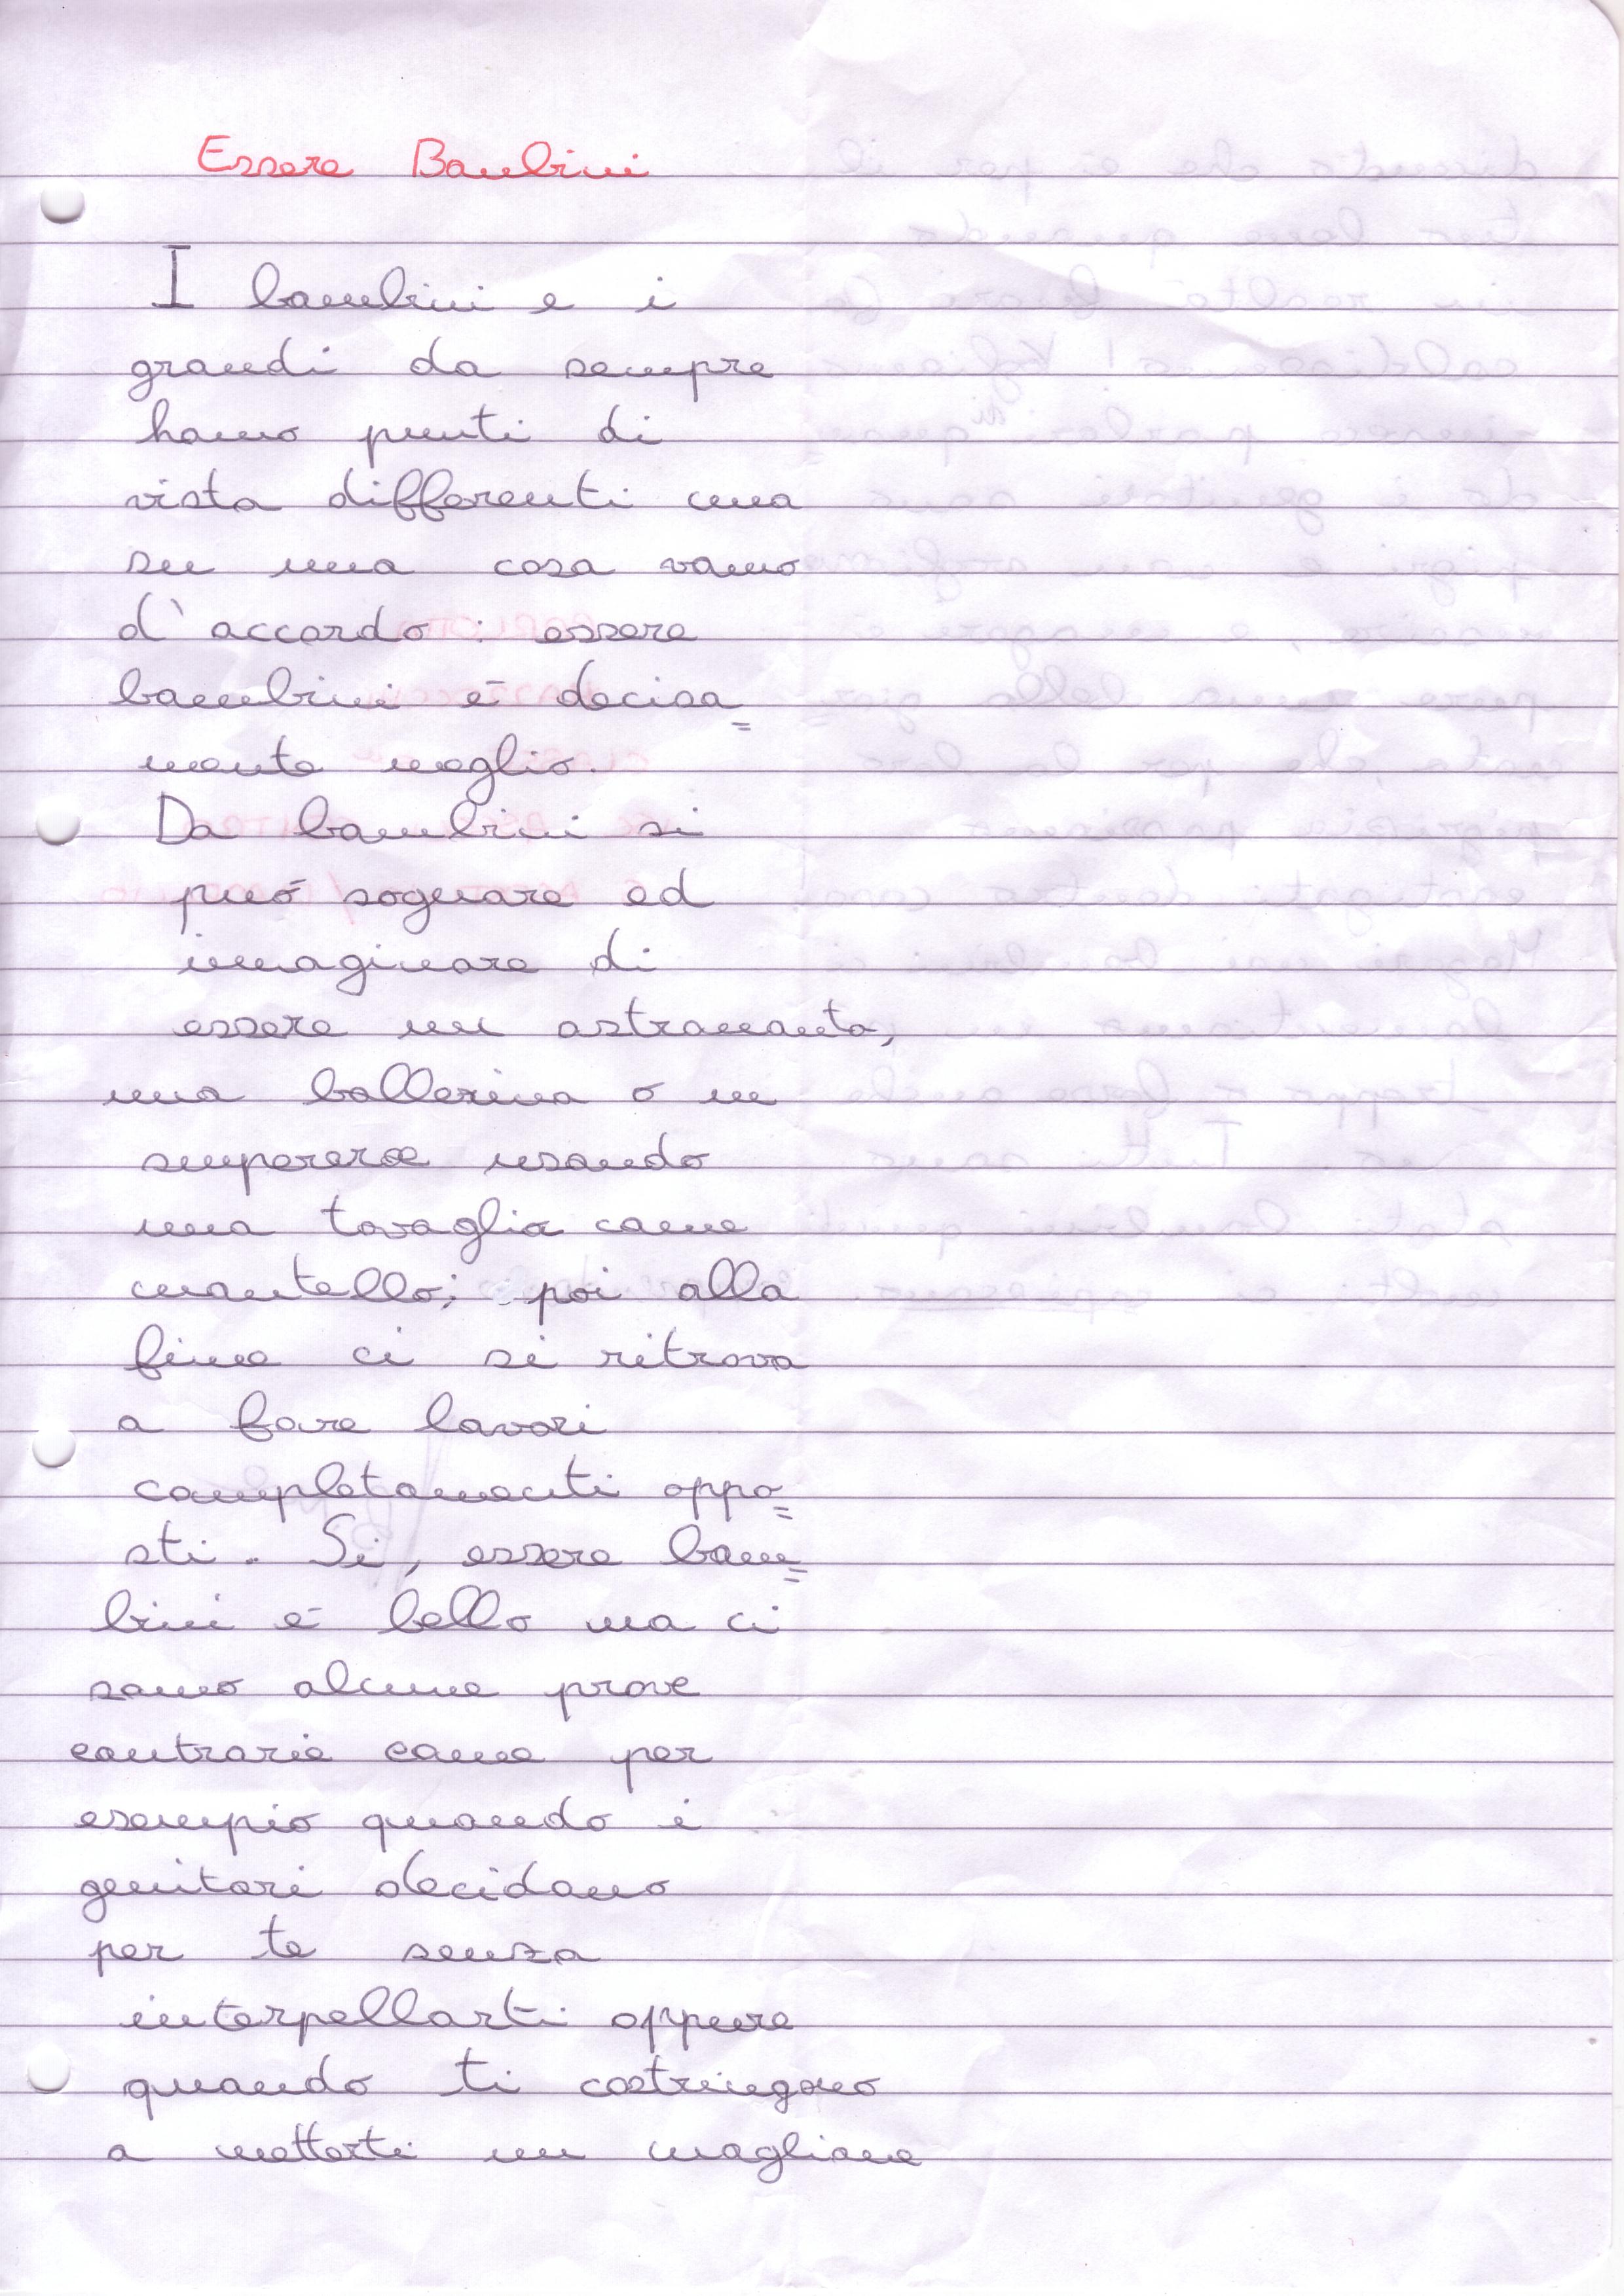 Essere Bambini
I bambini e i
grandi da sempre
hanno punti di
vista differenti ma
su una cosa vanno
d'accordo: essere
bambini è decisa=
mente meglio.
Da bambini si
può sognare ed
immaginare di
essere un astronauta,
una ballerina o un
supereroe usando
una tovaglia come
mantello; poi alla
fine ci si ritrova
a fare lavori
completamenti oppo=
sti. Si, essere bam=
bini è bello ma ci
sono alcune prove
contrarie come per
esempio quando i
genitori decidono
per te senza
interpellarti oppure
quando ti costringono
a metterti un maglione